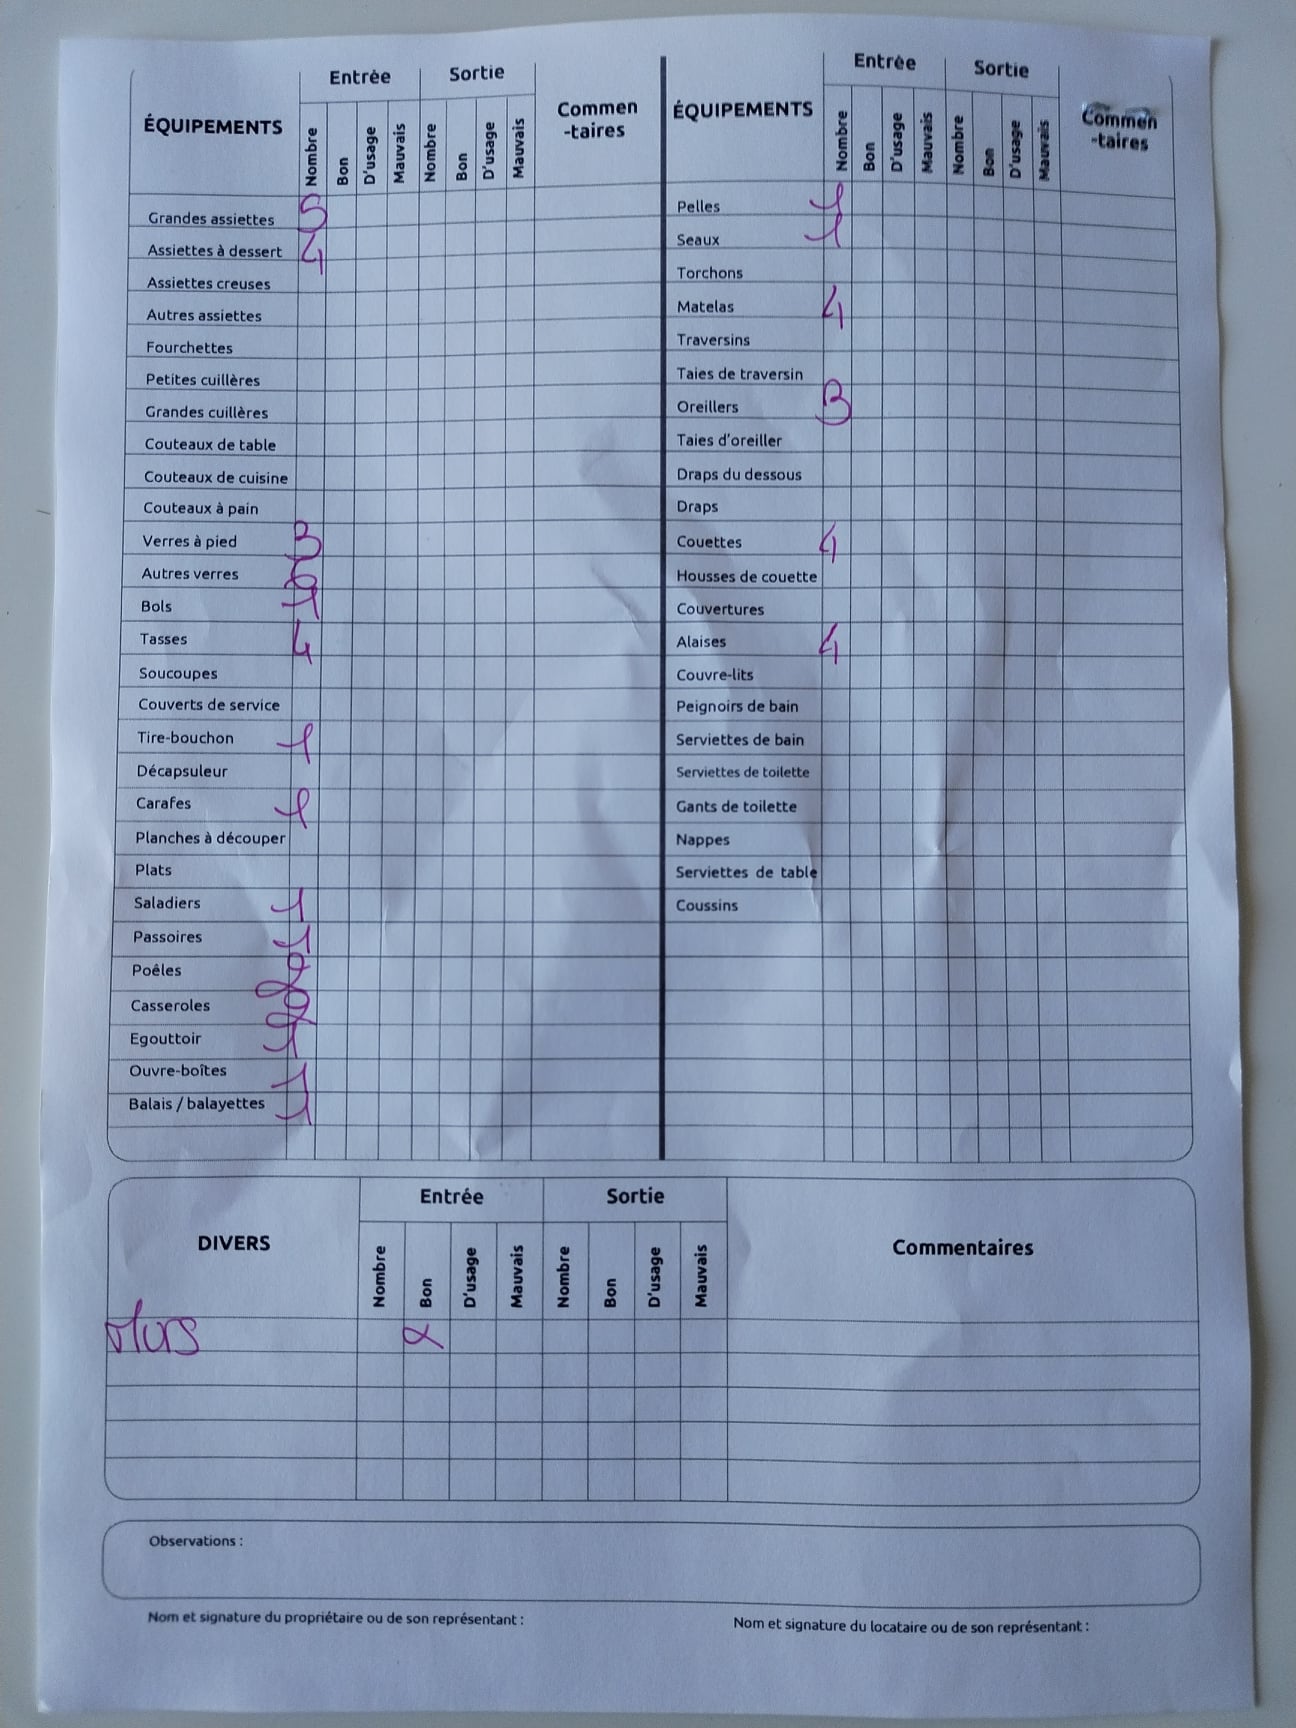 ÉQUIPEMENTS Entrée Sortie Commen-taires
Nombre Bon D'usage Mauvais Nombre Bon D'usage Mauvais
Grandes assiettes 5
Assiettes à dessert 4
Assiettes creuses
Autres assiettes
Fourchettes
Petites cuillères
Grandes cuillères
Couteaux de table
Couteaux de cuisine
Couteaux à pain
Verres à pied 3
Autres verres 6
Bols 1
Tasses 4
Soucoupes
Couverts de service
Tire-bouchon 1
Décapsuleur
Carafes 1
Planches à découper
Plats
Saladiers 1
Passoires 1
Poêles 2
Casseroles 2
Egouttoir 1
Ouvre-boîtes 1
Balais / balayettes 1
ÉQUIPEMENTS Entrée Sortie Commen-taires
Nombre Bon D'usage Mauvais Nombre Bon D'usage Mauvais
Pelles 1
Seaux 1
Torchons
Matelas 4
Traversins
Taies de traversin
Oreillers 3
Taies d'oreiller
Draps du dessous
Draps
Couettes 4
Housses de couette
Couvertures
Alaises 4
Couvre-lits
Peignoirs de bain
Serviettes de bain
Serviettes de toilette
Gants de toilette
Nappes
Serviettes de table
Coussins
DIVERS Entrée Sortie Commentaires
Nombre Bon D'usage Mauvais Nombre Bon D'usage Mauvais
Murs x
Observations :
Nom et signature du propriétaire ou de son représentant :
Nom et signature du locataire ou de son représentant :